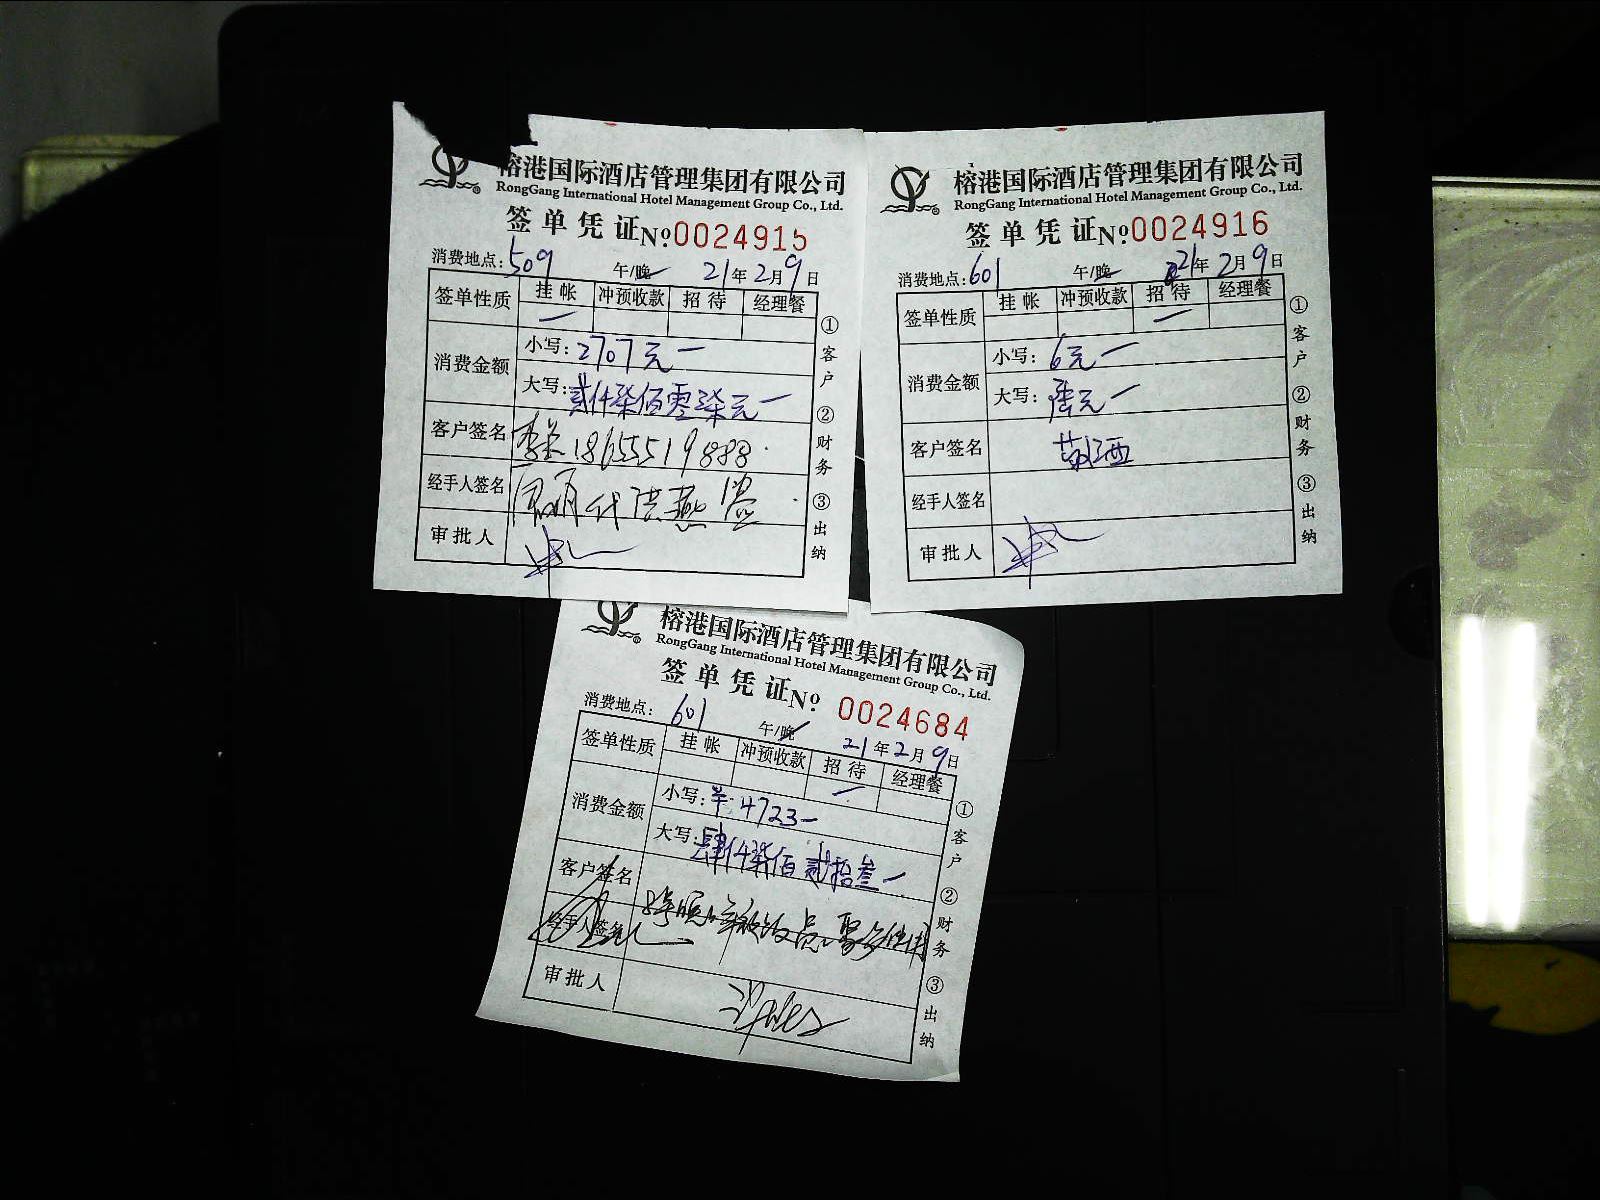 榕港国际酒店管理集团有限公司
RongGang International Hotel Management Group Co., Ltd.
签单凭证 №0024915
消费地点: 509 午/晚 21年2月9日
签单性质 挂帐 冲预收款 招待 经理餐
消费金额 小写: 2707元
大写: 贰仟柒佰零柒元
客户签名 18655519888
经手人签名 代洪燕签
审批人
① 客户 ② 财务 ③ 出纳
榕港国际酒店管理集团有限公司
RongGang International Hotel Management Group Co., Ltd.
签单凭证 №0024916
消费地点: 601 午/晚 21年2月9日
签单性质 挂帐 冲预收款 招待 经理餐
消费金额 小写: 6元
大写: 陆元
客户签名
经手人签名
审批人
① 客户 ② 财务 ③ 出纳
榕港国际酒店管理集团有限公司
RongGang International Hotel Management Group Co., Ltd.
签单凭证 № 0024684
消费地点: 601 午/晚 21年2月9日
签单性质 挂帐 冲预收款 招待 经理餐
消费金额 小写: ¥:4723
大写: 肆仟柒佰贰拾叁
客户签名
经手人签名
审批人
① 客户 ② 财务 ③ 出纳